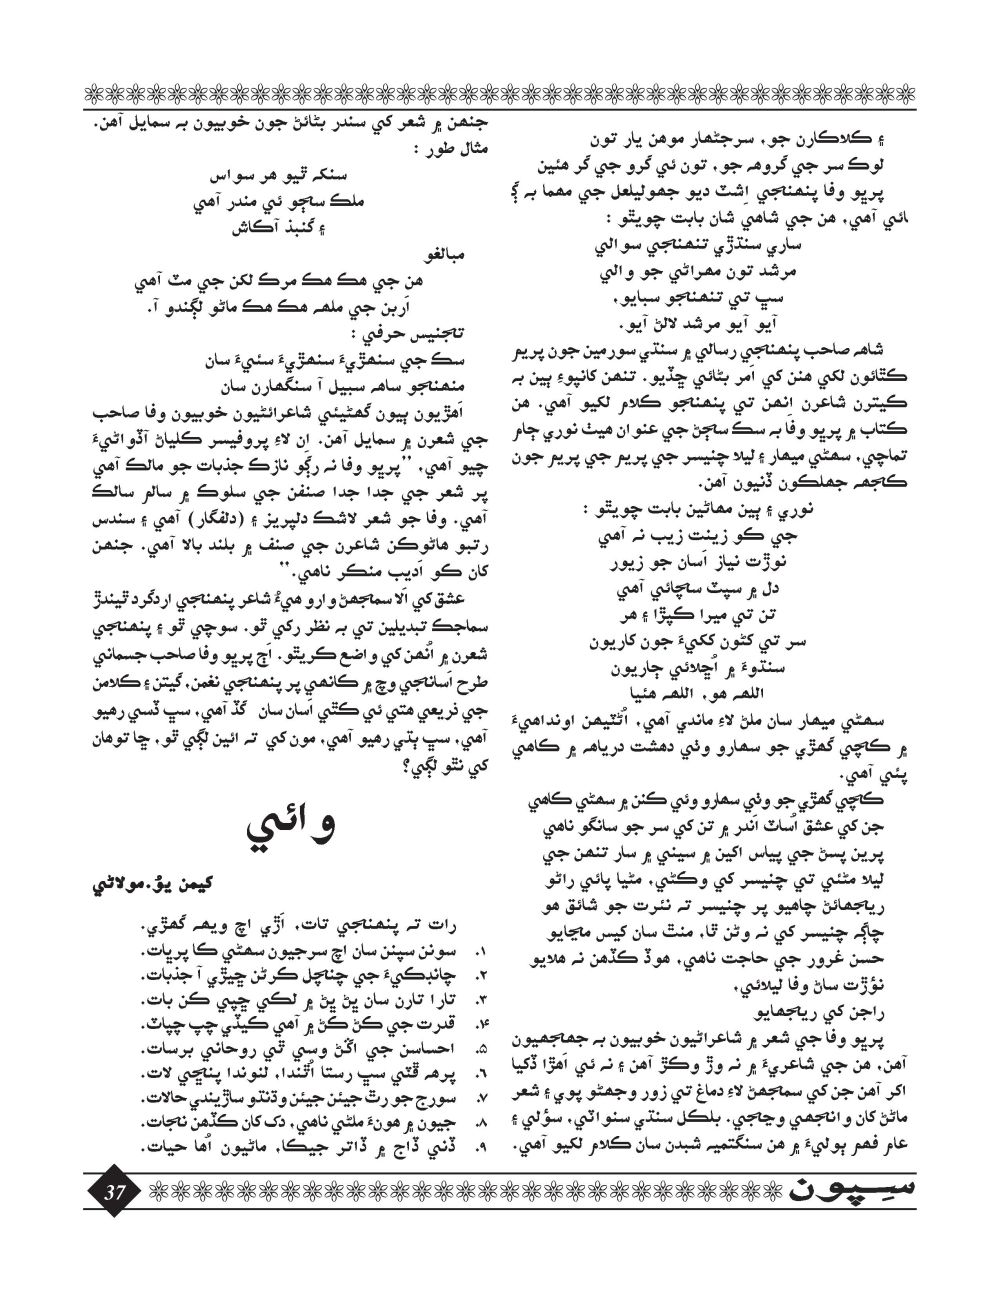 ۽ ڪلاڪارن جو، سرجڻھار موهن يار تون
لوڪ سر جي گروهہ جو، تون ئي گرو جي گر هئين
پرڀو وفا پنھنجي اِشٽ ديو جھوليلعل جي مھما بہ ڳ
ائي آهي، هن جي شاهي شان بابت چويٿو :
ساري سنڌڙي تنھنجي سوالي
مرشد تون مھراڻي جو والي
سڀ تي تنھنجو سبايو،
آيو آيو مرشد لالڻ آيو.
شاهہ صاحب پنھنجي رسالي ۾ سنڌي سورمين جون پريم
ڪٿائون لکي هنن کي اَمر بڻائي ڇڏيو. تنھن کانپوءِ ٻين بہ
ڪيترن شاعرن اِنھن تي پنھنجو ڪلام لکيو آهي. هن
ڪتاب ۾ پرڀو وفا بہ سڪ سڄڻ جي عنوان هيٺ نوري ڄام
تماچي، سھڻي ميھار ۽ ليلا چنيسر جي پريم جي پريم جون
ڪجھہ جھلڪون ڏنيون آهن.
نوري ۽ ٻين مھاڻين بابت چويٿو :
جي ڪو زينت زيب نہ آهي
نوڙت نياز اَسان جو زيور
دل ۾ سپٽ سچائي آهي
تن تي ميرا ڪپڙا ۽ هر
سر تي کڻون ککيءَ جون کاريون
سنڌوءَ ۾ اُڇلائي ڄاريون
اللھہ هو، اللھہ هئيا
سھڻي ميھار سان ملڻ لاءِ ماندي آهي، اُڻٽيھن اونداهيءَ
۾ ڪچي گھڙي جو سھارو وٺي دهشت درياهہ ۾ ڪاهي
پئي آهي.
ڪچي گھڙي جو وٺي سھارو وئي ڪنن ۾ سھڻي ڪاهي
جن کي عشق اُسات اَندر ۾ تن کي سر جو سانگو ناهي
پرين پسڻ جي پياس اکين ۾ سيني ۾ سار تنھن جي
ليلا مڻئي تي چنيسر کي وڪڻي، مڻيا پائي راڻو
ريجھائڻ چاهيو پر چنيسر تہ نئرت جو شائق هو
چاڳہ چنيسر کي نہ وڻن ٿا، منٿ سان کيس مڃايو
حسن غرور جي حاجت ناهي، هوڏ ڪڏهن نہ هلايو
نؤڙت ساڻ وفا ليلائي،
راجن کي ريجھايو
پرڀو وفا جي شعر ۾ شاعراڻيون خوبيون بہ جھجھيون
آهن، هن جي شاعريءَ ۾ نہ وڙ وڪڙ آهن ۽ نہ ئي اَهڙا ڏکيا
اکر آهن جن کي سمجھڻ لاءِ دماغ تي زور وجھڻو پوي ۽ شعر
ماڻڻ کان وانجھي وڃجي. بلڪل سنڌي سنواٽي، سؤلي ۽
عام فھم ٻوليءَ ۾ هن سنگتميہ شبدن سان ڪلام لکيو آهي.
جنھن ۾ شعر کي سندر بڻائڻ جون خوبيون بہ سمايل آهن.
مثال طور :
سنکہ ٿيو هر سواس
ملڪ سڄو ئي مندر آهي
۽ گنبذ آڪاش
مبالغو
هن جي هڪ هڪ مرڪ لکن جي مٽ آهي
اَربن جي ملھہ هڪ هڪ ماڻو لڳندو آ.
تجنيس حرفي :
سڪ جي سنھڙيءَ سنھڙيءَ سئيءَ سان
منھنجو ساهہ سبيل آ سنگھارن سان
اَهڙيون ٻيون گھڻيئي شاعراڻيون خوبيون وفا صاحب
جي شعرن ۾ سمايل آهن. اِن لاءِ پروفيسر ڪلياڻ آڏواڻيءَ
چيو آهي، ’’پرڀو وفا نہ رڳو نازڪ جذبات جو مالڪ آهي
پر شعر جي جدا جدا صنفن جي سلوڪ ۾ سالم سالڪ
آهي. وفا جو شعر لاشڪ دلپريز ۽ (دلفگار) آهي ۽ سندس
رتبو هاڻوڪن شاعرن جي صنف ۾ بلند بالا آهي. جنھن
کان ڪو اَديب منڪر ناهي.’’
عشق کي اَلا سمجھڻ وارو هيءُ شاعر پنھنجي اردگرد ٿيندڙ
سماجڪ تبديلين تي بہ نظر رکي ٿو. سوچي ٿو ۽ پنھنجي
شعرن ۾ اُنھن کي واضع ڪريٿو. اَڄ پرڀو وفا صاحب جسماني
طرح اَسانجي وچ ۾ ڪانھي پر پنھنجي نغمن، گيتن ۽ ڪلامن
جي ذريعي هتي ئي ڪٿي اَسان سان گڏ آهي، سڀ ڏسي رهيو
آهي، سڀ ٻڌي رهيو آهي، مون کي تہ ائين لڳي ٿو، ڇا توهان
کي نٿو لڳي؟
وائي
کيمن يوُ.مولاڻي
رات تہ پنھنجي تات، اَڙي اچ ويھہ گھڙي.
۱. سونن سپنن سان اچ سرجيون سھڻي ڪا پريات.
۲. چانڊڪيءَ جي چنچل ڪرڻن ڇيڙي آ جذبات.
۳. تارا تارن سان پڻ پڻ ۾ لڪي ڇپي ڪن بات.
۴. قدرت جي ڪڻ ڪڻ ۾ آهي ڪيڏي چپ چپات.
۵. احساسن جي اڱڻ وسي ٿي روحاني برسات.
۶. پرهہ ڦٽي سڀ رستا اُٿندا، لنوندا پنڇي لات.
۷. سورج جو رٿ جيئن جيئن وڌندو ساڙيندي حالات.
۸. جيون ۾ هونءَ ملڻي ناهي، دک کان ڪڏهن نجات.
۹. ڏني ڏاج ۾ ڏاتر جيڪا، ماڻيون اُها حيات.
37
سِپون